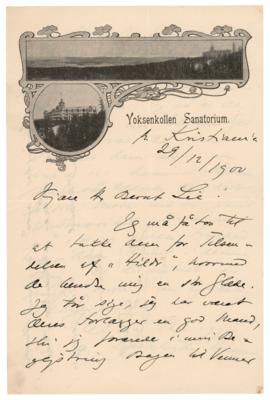 Voksenkollen Sanatorium.
pr. Kristiania
29/12/1900
Kjære Hr Bernt Lie!
Jeg må få lov til
at takke dem for Tilsen-
delsen af "Hildr", hvormed
de sendte mig en stor Glæde.
Jeg tør sige, jeg har været
Deres Forlægger en god Mand,
thi jeg forærede i min Be-
gejstring Bogen til Venner